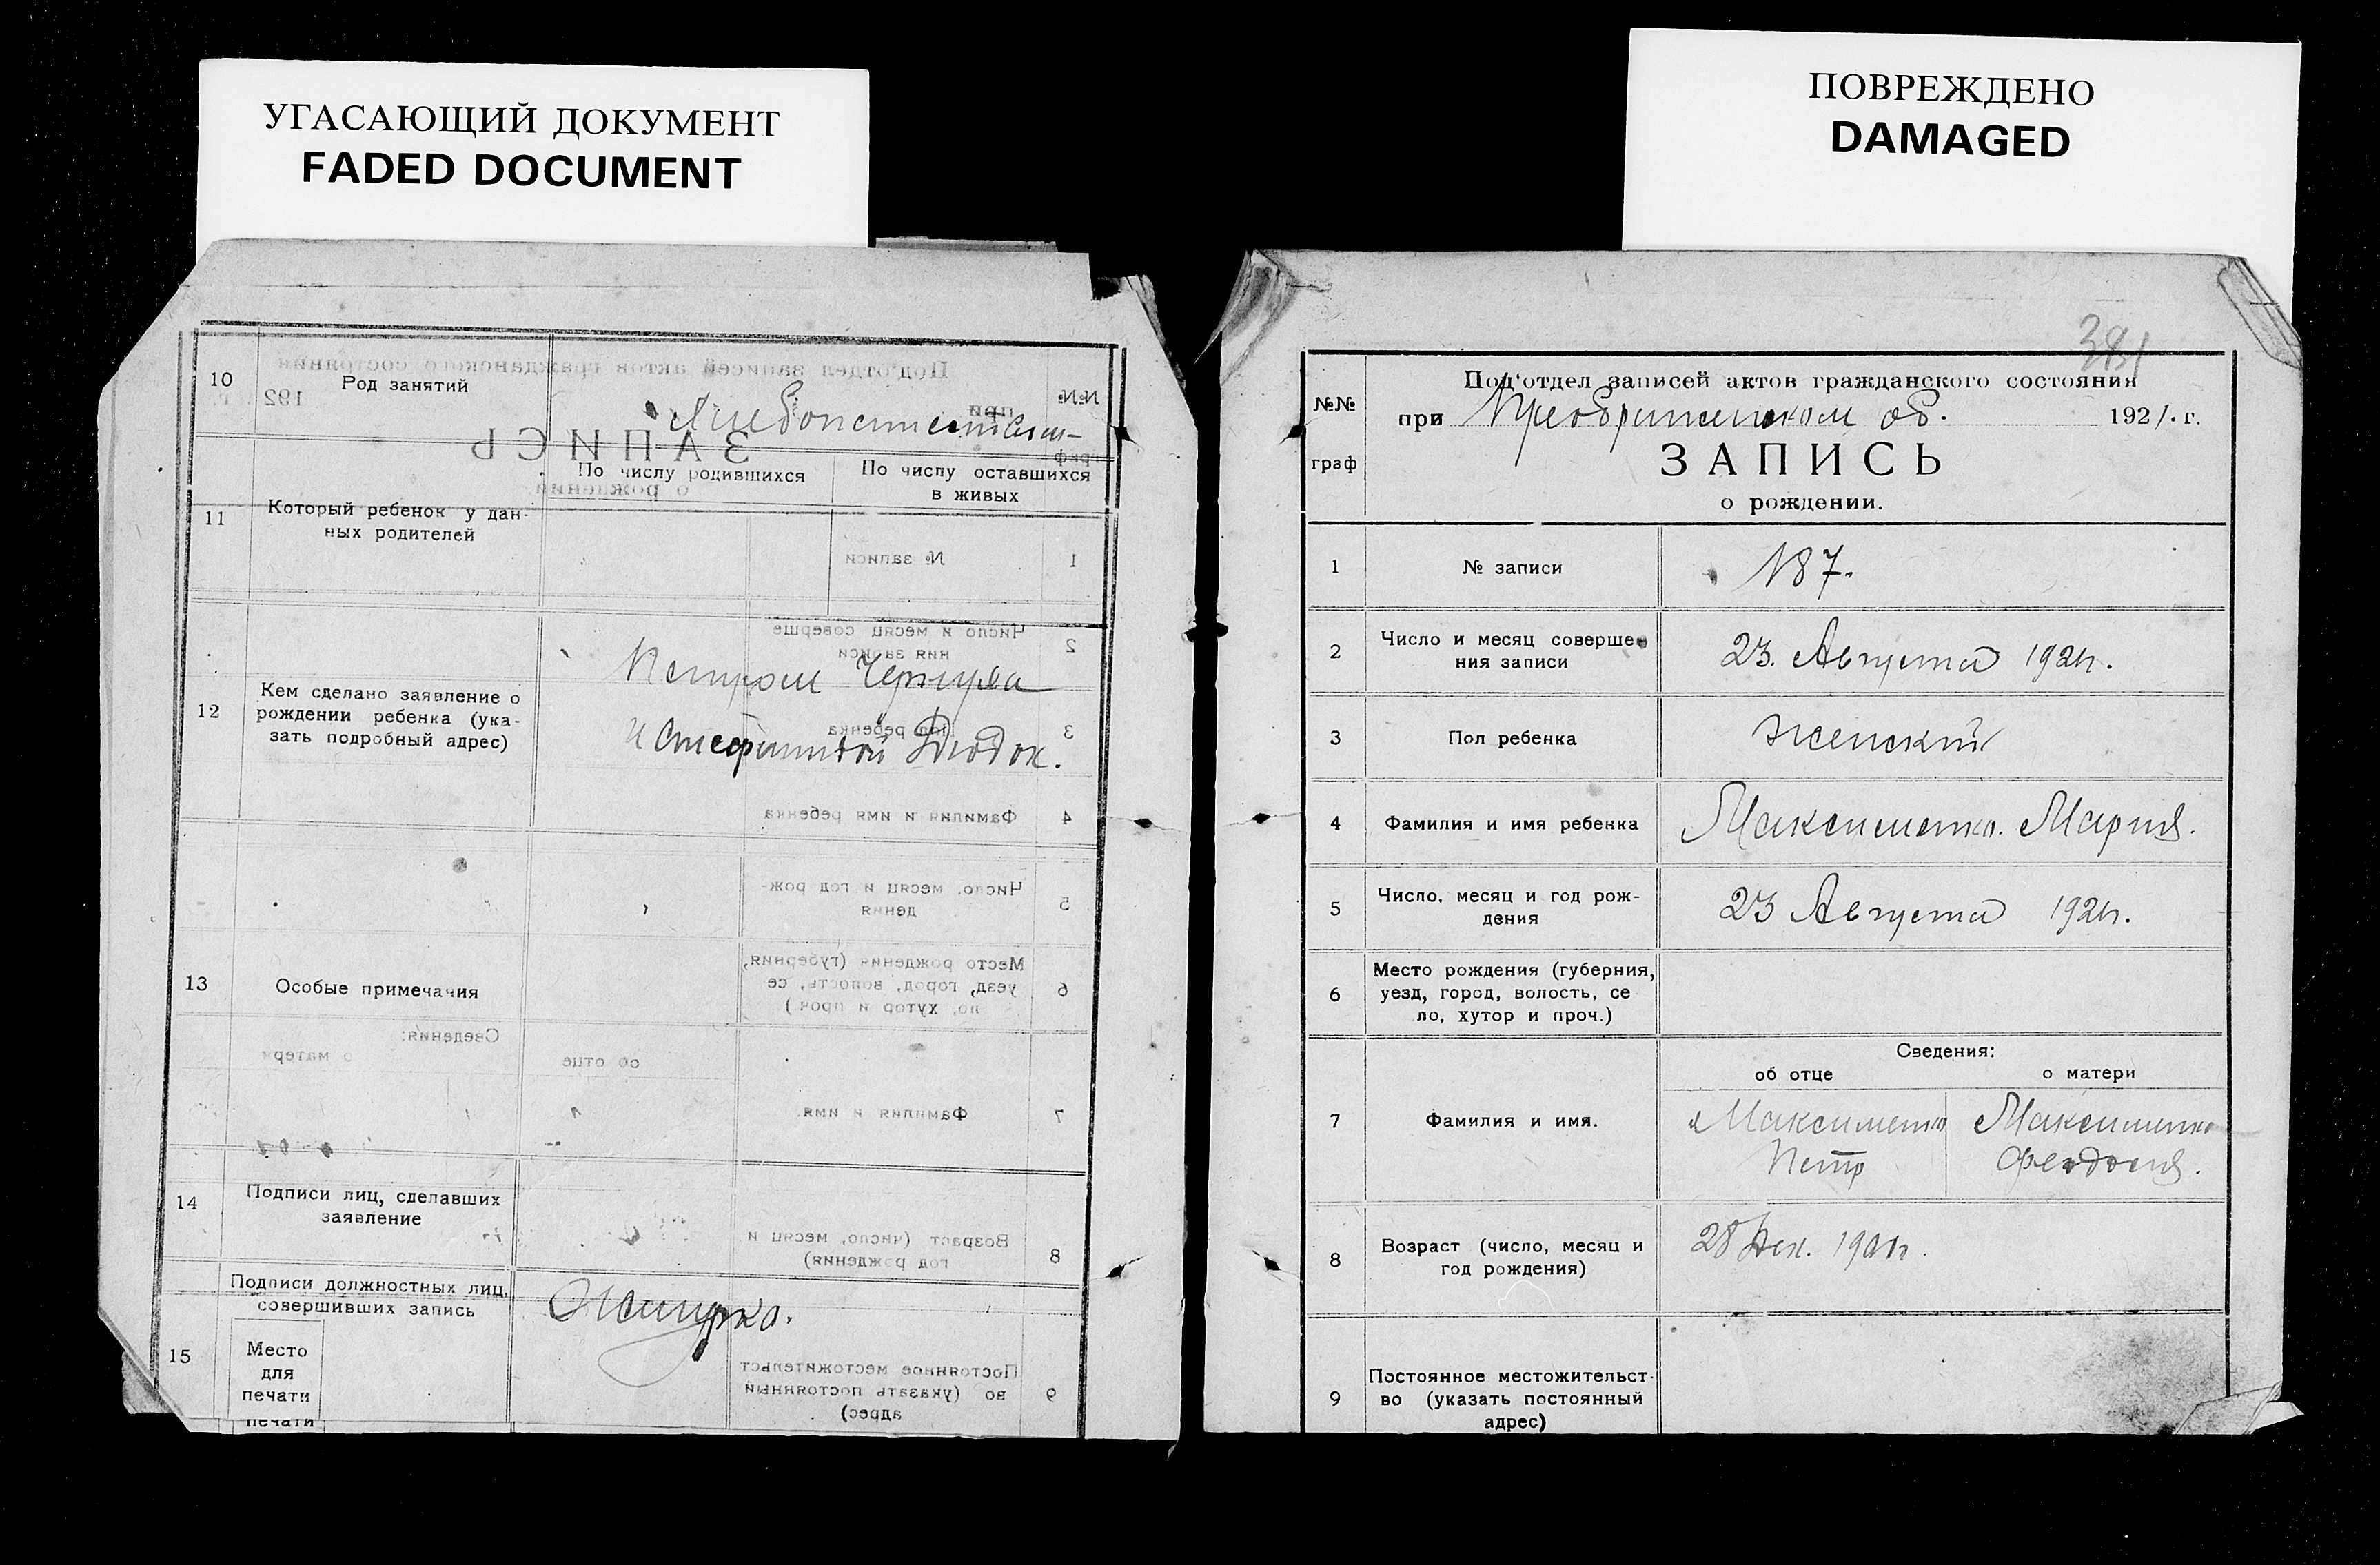 УГАСАЮЩИЙ ДОКУМЕНТ
FADED DOCUMENT
10
Род занятий
Хлебопашество
11
Который ребенок у дан-
ных родителей
По числу родившихся
По числу оставшихся
в живых
12
Кем сделано заявление о
рождении ребенка (ука-
зать подробный адрес)
Петром
и
13
Особые примечания
14
Подписи лиц, сделавших
заявление
Подписи должностных лиц,
совершивших запись
15
Место
для
печати
печати
ПОВРЕЖДЕНО
DAMAGED
381
№№
граф
Под'отдел записей актов гражданского состояния
при Преображенском об. 1921. г.
ЗАПИСЬ
о рождении.
1
№ записи
187.
2
Число и месяц соверше-
ния записи
23. Августа 1921г.
3
Пол ребенка
женский
4
Фамилия и имя ребенка
Максименко. Мария.
5
Число, месяц и год рож-
дения
23 Августа 1921г.
6
Место рождения (губерния,
уезд, город, волость, се
ло, хутор и проч.)
Сведения:
об отце
о матери
7
Фамилия и имя.
Максименко
Петр
Максименко
Феодосия.
8
Возраст (число, месяц и
год рождения)
28 Дек. 1901г.
9
Постоянное местожительст-
во (указать постоянный
адрес)